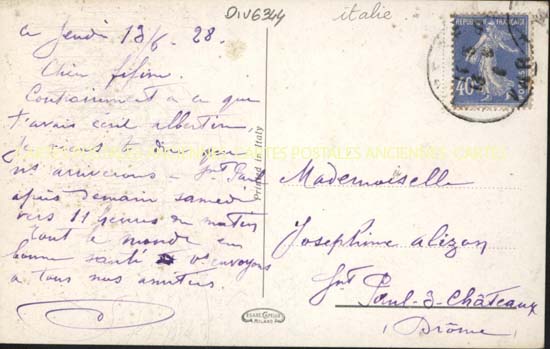 DIV6344
italie
ce Jeudi 13/6 - 28.
Chère fifine.
Contrairement a ce que
t'avais écrit albertine,
Je viens te dire que
ns arriverons a Snt Paul
après demain samedi
vers 11 heures du matin
Tout le monde en
bonne santé vs envoyons
a tous nos amitiés
REPUBLIQUE FRANÇAISE
40c
POSTES
CARTES POSTALES ANCIENNES CARTES
Printed in Italy
Mademoiselle
Josephine alizon
Snt Paul-3-Châteaux
(Drôme)
MILANO